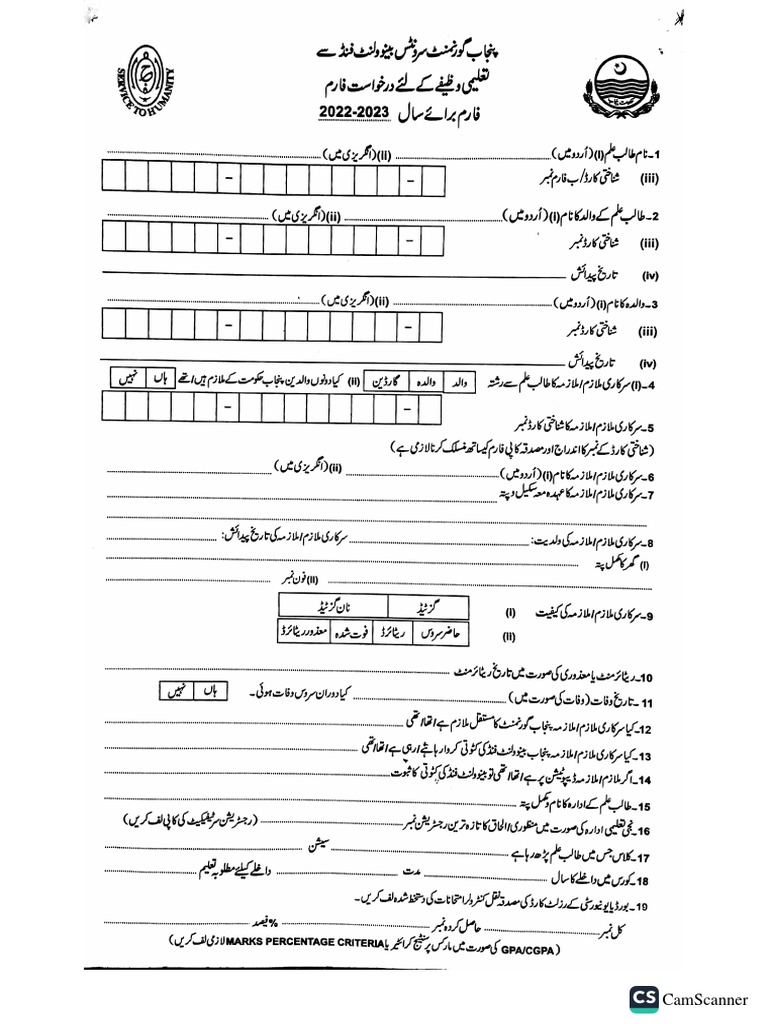 پنجاب گورنمنٹ سرونٹس بینوولنٹ فنڈ سے
تعلیمی وظیفے کے لئے درخواست فارم
فارم برائے سال 2022-2023
SERVICE TO HUMANITY
1۔ نام طالب علم (i) (اُردو میں) (ii) (انگریزی میں)
(iii) شناختی کارڈ/ب فارم نمبر
2۔ طالب علم کے والد کا نام (i) (اُردو میں) (ii) (انگریزی میں)
(iii) شناختی کارڈ نمبر
(iv) تاریخ پیدائش
3۔ والدہ کا نام (i) (اُردو میں) (ii) (انگریزی میں)
(iii) شناختی کارڈ نمبر
(iv) تاریخ پیدائش
4۔ (i) سرکاری ملازم/ملازمہ کا طالب علم سے رشتہ والد والدہ گارڈین (ii) کیا دونوں والدین پنجاب حکومت کے ملازم ہیں/تھے ہاں نہیں
5۔ سرکاری ملازم/ملازمہ کا شناختی کارڈ نمبر
(شناختی کارڈ کے نمبر کا اندراج اور مصدقہ کاپی فارم کیساتھ منسلک کرنا لازمی ہے)
6۔ سرکاری ملازم/ملازمہ کا نام (i) (اُردو میں) (ii) (انگریزی میں)
7۔ سرکاری ملازم/ملازمہ کا عہدہ معہ سکیل و پتہ
8۔ سرکاری ملازم/ملازمہ کی ولدیت: سرکاری ملازم/ملازمہ کی تاریخ پیدائش:
(i) گھر کا مکمل پتہ
(ii) فون نمبر
9۔ سرکاری ملازم/ملازمہ کی کیفیت (i) گزٹیڈ نان گزٹیڈ
(ii) حاضر سروس ریٹائرڈ فوت شدہ معذور ریٹائرڈ
10۔ ریٹائرمنٹ یا معذوری کی صورت میں تاریخ ریٹائرمنٹ
11۔ تاریخ وفات (وفات کی صورت میں) کیا دوران سروس وفات ہوئی۔ ہاں نہیں
12۔ کیا سرکاری ملازم/ملازمہ پنجاب گورنمنٹ کا مستقل ملازم ہے/تھا/تھی
13۔ کیا سرکاری ملازم/ملازمہ پنجاب بینوولنٹ فنڈ کی کٹوتی کروا رہا ہے/رہی ہے/تھا/تھی
14۔ اگر ملازم/ملازمہ ڈیپوٹیشن پر ہے/تھا/تھی تو بینوولنٹ فنڈ کی کٹوتی کا ثبوت
15۔ طالب علم کے ادارہ کا نام و مکمل پتہ
16۔ نجی تعلیمی ادارہ کی صورت میں منظوری/الحاق کا تازہ ترین رجسٹریشن نمبر (رجسٹریشن سرٹیفکیٹ کی کاپی لف کریں)
17۔ کلاس جس میں طالب علم پڑھ رہا ہے سیشن
18۔ کورس میں داخلے کا سال مدت داخلے کیلئے مطلوبہ تعلیم
19۔ بورڈ/یونیورسٹی کے رزلٹ کارڈ کی مصدقہ نقل کنٹرولر امتحانات کی دستخط شدہ لف کریں۔
کل نمبر حاصل کردہ نمبر %فیصد
(GPA/CGPA کی صورت میں مارکس پرسنٹیج کرائٹیریا MARKS PERCENTAGE CRITERIA لازمی لف کریں)
CS CamScanner